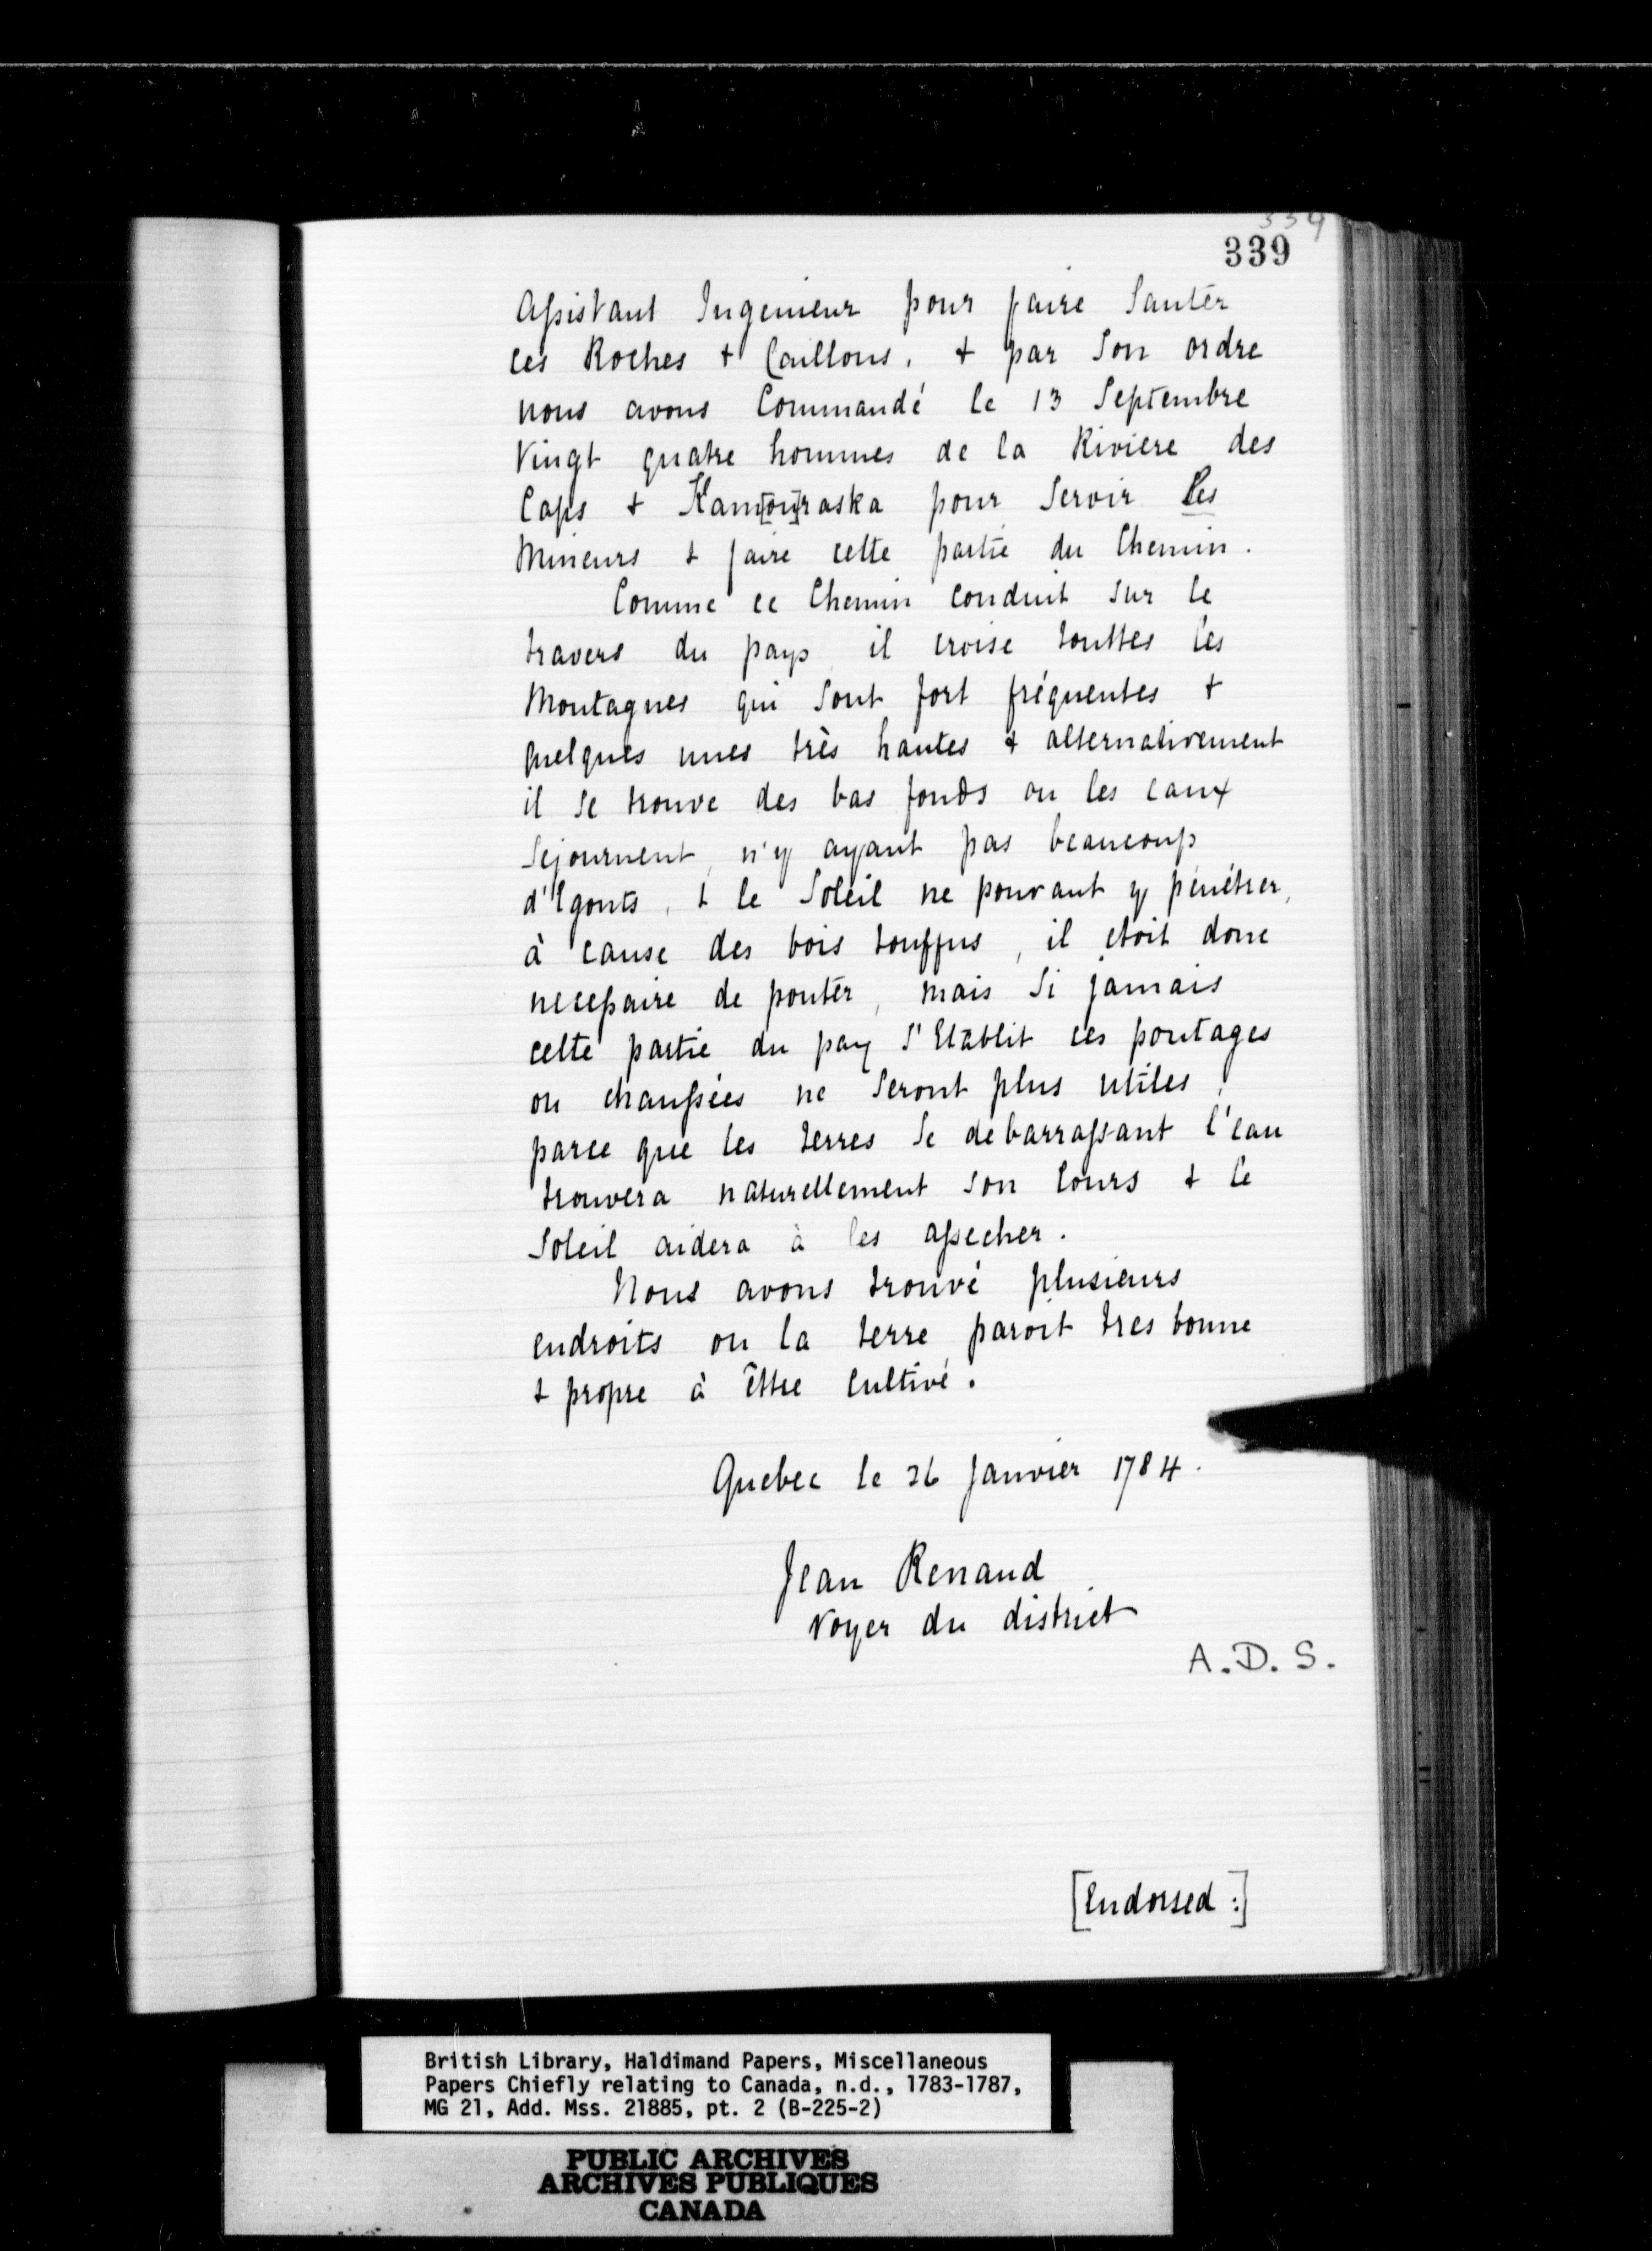 339
339
Assistant Ingenieur pour faire Sauter
ces Roches & Caillous, & par Son ordre
nous avons Commandé le 13 Septembre
Vingt quatre hommes de la Riviere des
Caps & Kam[ou]raska pour Servir Les
Mineurs & faire cette partie du Chemin.
Comme ce Chemin conduit sur le
travers du pays il croise touttes les
Montagnes qui Sont fort fréquentes &
quelques unes très hautes & alternativement
il se trouve des bas fonds ou les eaux
Sejournent, n'y ayant pas beaucoup
d'Egouts, & le Soleil ne pouvant y pénétrer,
à cause des bois touffus, il etoit donc
necessaire de ponter, mais Si jamais
cette partie du pay S'Etablit ces pontages
ou chaussées ne Seront plus utiles,
parce que les terres se debarrassant l'eau
trouvera naturellement son Cours & le
Soleil aidera à les assecher.
Nous avons trouvé plusieurs
endroits ou la terre paroit tres bonne
& propre à être Cultivé.
Quebec le 26 Janvier 1784.
Jean Renaud
Voyer du district
A.D.S.
[Endorsed:]
British Library, Haldimand Papers, Miscellaneous
Papers Chiefly relating to Canada, n.d., 1783-1787,
MG 21, Add. Mss. 21885, pt. 2 (B-225-2)
PUBLIC ARCHIVES
ARCHIVES PUBLIQUES
CANADA